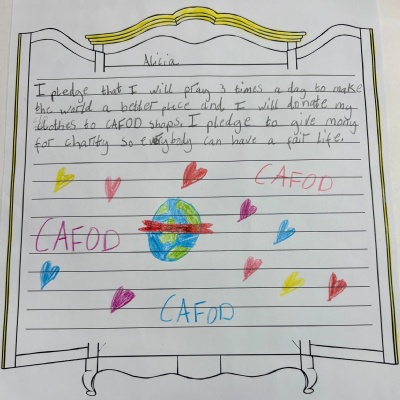 Alicia
I pledge that I will pray 3 times a day to make
the world a better place and I will donate my
clothes to CAFOD shops. I pledge to give mony
for charity so everybody can have a fair life.
CAFOD
CAFOD
CAFOD